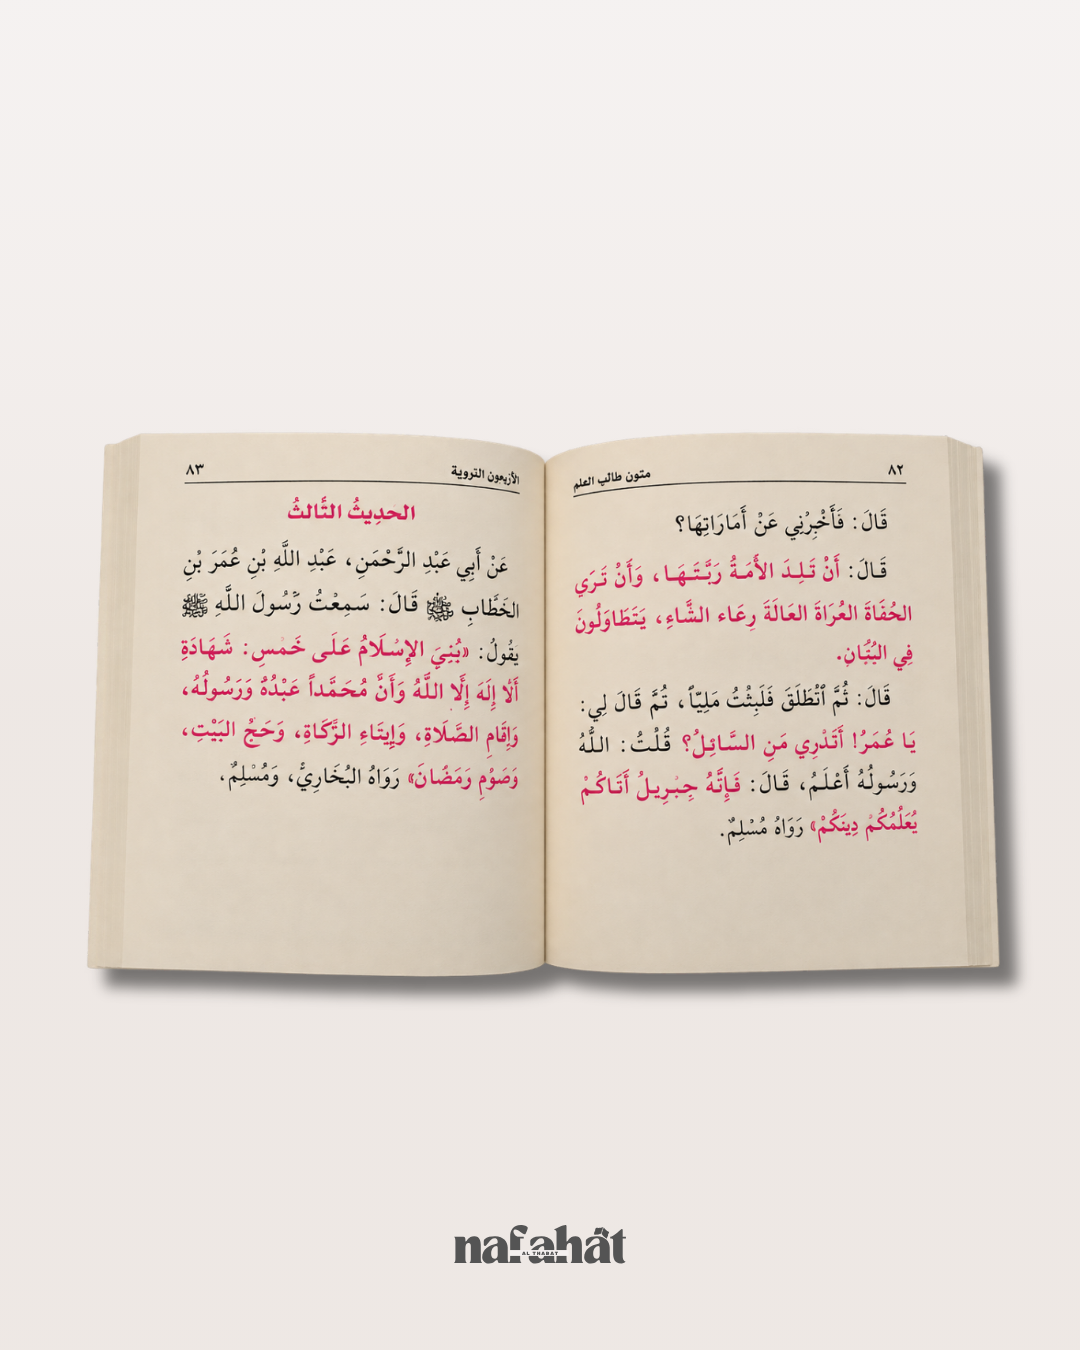 ٨٢
متون طالب العلم
قَالَ: فَأَخْبِرْنِي عَنْ أَمَارَاتِهَا؟
قَالَ: أَنْ تَلِدَ الأَمَةُ رَبَّتَهَا، وَأَنْ تَرَي
الحُفَاةَ العُرَاةَ العَالَةَ رِعَاء الشَّاءِ، يَتَطَاوَلُونَ
فِي البُنْيَانِ.
قَالَ: ثُمَّ ٱنْطَلَقَ فَلَبِثْتُ مَلِيّاً، ثُمَّ قَالَ لِي:
يَا عُمَرُ! أَتَدْرِي مَنِ السَّائِلُ؟ قُلْتُ: اللَّهُ
وَرَسُولُهُ أَعْلَمُ، قَالَ: فَإِنَّهُ جِبْرِيلُ أَتَاكُمْ
يُعَلِّمُكُمْ دِينَكُمْ» رَوَاهُ مُسْلِمٌ.
الأربعون النروية
٨٣
الحدِيثُ الثَّالثُ
عَنْ أَبِي عَبْدِ الرَّحْمَنِ، عَبْدِ اللَّهِ بْنِ عُمَرَ بْنِ
الخَطَّابِ ﷺ قَالَ: سَمِعْتُ رَسُولَ اللَّهِ ﷺ
يقُولُ: «بُنِيَ الإِسْلَامُ عَلَى خَمْسٍ: شَهَادَةِ
أَلَّا إِلَهَ إِلَّا اللَّهُ وَأَنَّ مُحَمَّداً عَبْدُهُ وَرَسُولُهُ،
وَإِقَامِ الصَّلَاةِ، وَإِيتَاءِ الزَّكَاةِ، وَحَجِّ البَيْتِ،
وَصَوْمِ رَمَضَانَ» رَوَاهُ البُخَارِيُّ، وَمُسْلِمٌ.
nafahât
AL THABAT